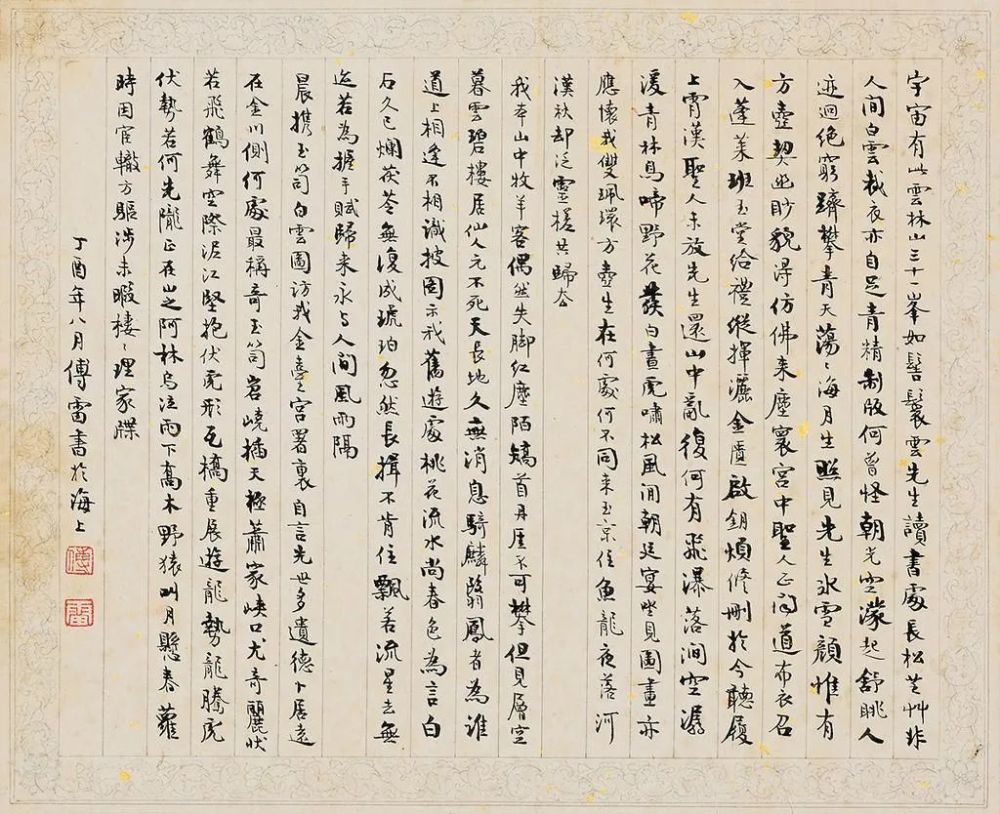 宇宙有此雲林山三十一峯如髻鬟雲先生讀書處長松芝艸非
人間白雲裁衣亦自足青精制飯何曾怪朝光空濛起舒眺人
迹迥絕窮躋攀青天蕩〻海月生照見先生冰雪顏惟有
方壺契幽眇貌得仿佛来塵寰宮中聖人正問道布衣召
入蓬萊班玉堂給禮縱揮灑金匱啟鑰煩修刪於今聽履
上霄漢聖人未放先生還山中亂復何有飛瀑落澗空潺
湲青林鳥啼野花發白晝虎嘯松風閒朝廷宴坐見圖畫亦
應懷我雙珮環方壺生在何處何不同来玉京住魚龍夜落河
漢秋却泛靈槎共歸去
我本山中牧羊客偶然失脚紅塵陌矯首丹崖不可攀但見層空
暮雲碧樓居仙人元不死天長地久無消息騎麟翳鳳者為誰
道上相逢不相識披圖示我舊遊處桃花流水尚春色為言白
石久已爛茯苓無復成琥珀忽然長揖不肯住飄若流星去無
迹若為握手賦歸来永与人間風雨隔
晨携玉笥白雲圖訪我金臺宮署裏自言先世多遺德卜居遠
在金川側何處最稱奇玉笥岩嶢插天極蕭家峽口尤奇麗狀
若飛鶴舞空際泥江堅抱伏虎形瓦橋重展遊龍勢龍騰虎
伏勢若何先隴正在山之阿林烏泣雨下高木野猿叫月懸春蘿
時因宦轍方驅涉未暇棲〻理家牒
丁酉年八月傅雷書於海上
傅
雷